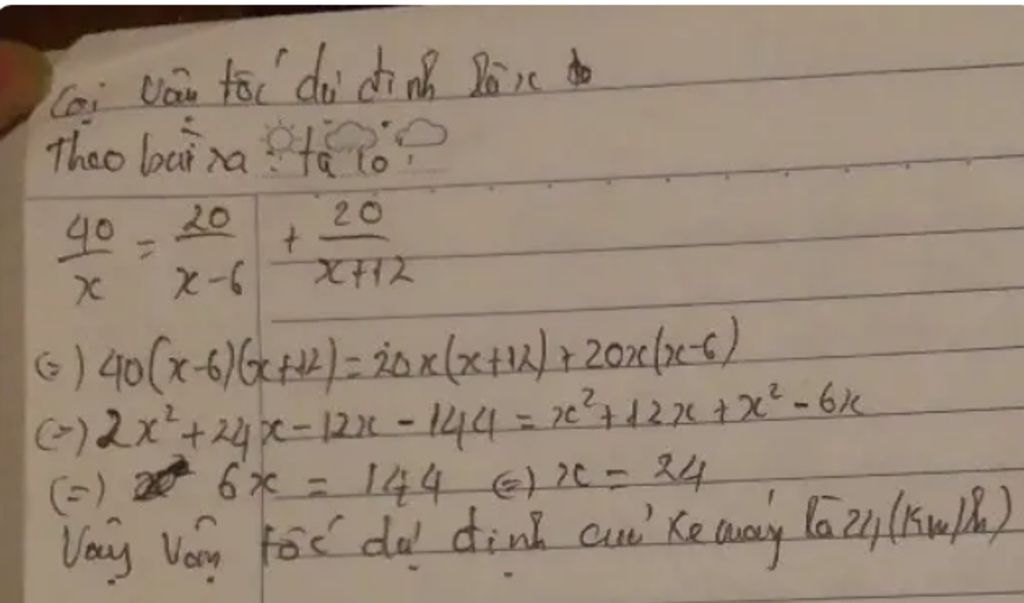 Gọi vận tốc dự định là x
Theo bài ra ta có:
40/x = 20/(x-6) + 20/(x+12)
(=) 40(x-6)(x+12) = 20x(x+12) + 20x(x-6)
(=) 2x² + 24x - 12x - 144 = x² + 12x + x² - 6x
(=) 6x = 144 (=) x = 24
Vậy vận tốc dự định của xe máy là 24 (Km/h)